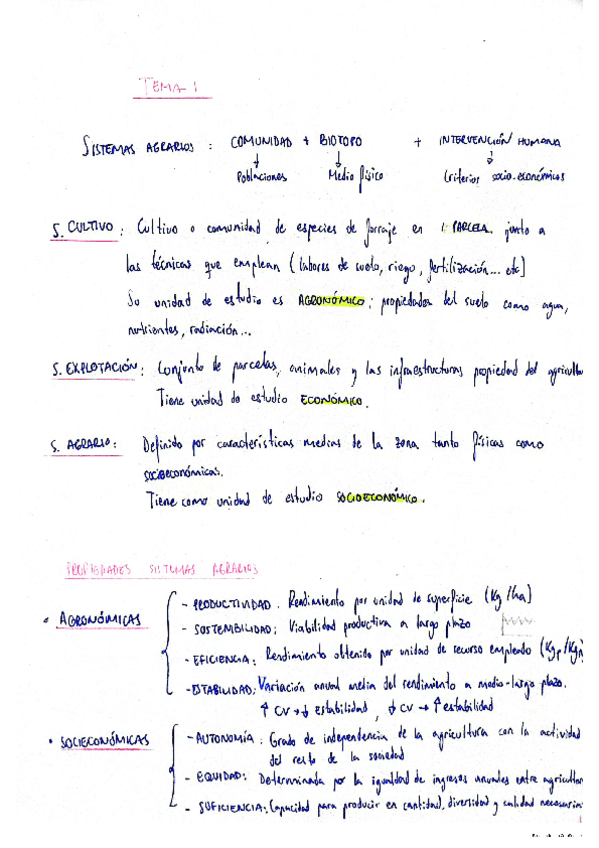 TEMA 1
SISTEMAS AGRARIOS : COMUNIDAD + BIOTOPO + INTERVENCIÓN HUMANA
Poblaciones Medio físico Criterios socio-económicos
S. CULTIVO : Cultivo o comunidad de especies de forraje en 1 PARCELA junto a
las técnicas que emplean (labores de suelo, riego, fertilización... etc)
Su unidad de estudio es AGRONÓMICO : propiedades del suelo como agua,
nutrientes, radiación...
S. EXPLOTACIÓN : Conjunto de parcelas, animales y las infraestructuras propiedad del agricultor
Tiene unidad de estudio ECONÓMICO.
S. AGRARIO : Definido por características medias de la zona tanto físicas como
socioeconómicas.
Tiene como unidad de estudio SOCIOECONÓMICO.
PROPIEDADES SISTEMAS AGRARIOS
• AGRONÓMICAS
- PRODUCTIVIDAD : Rendimiento por unidad de superficie (Kg/ha)
- SOSTENIBILIDAD : Viabilidad productiva a largo plazo
- EFICIENCIA : Rendimiento obtenido por unidad de recurso empleado (Kgp/Kgn)
- ESTABILIDAD : Variación anual media del rendimiento a medio-largo plazo.
↑ CV → ↓ estabilidad, ↓ CV → ↑ estabilidad
• SOCIECONÓMICAS
- AUTONOMÍA : Grado de independencia de la agricultura con la actividad
del resto de la sociedad
- EQUIDAD : Determinada por la igualdad de ingresos anuales entre agricultor
- SUFICIENCIA : Capacidad para producir en cantidad, diversidad y calidad necesaria